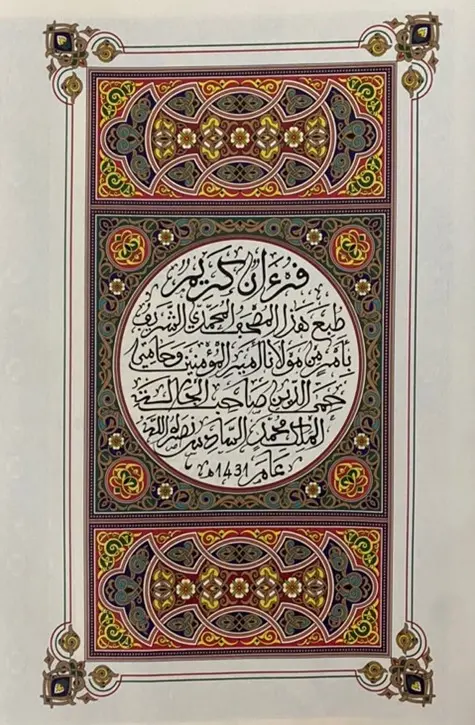 فرءان كريم
طبع هذا المصحف المحمدي الشريف
بأمر من مولانا أمير المؤمنين وحامي
حمى الدين صاحب الجلالة
الملك محمد السادس نصره الله
عام 1431هـ